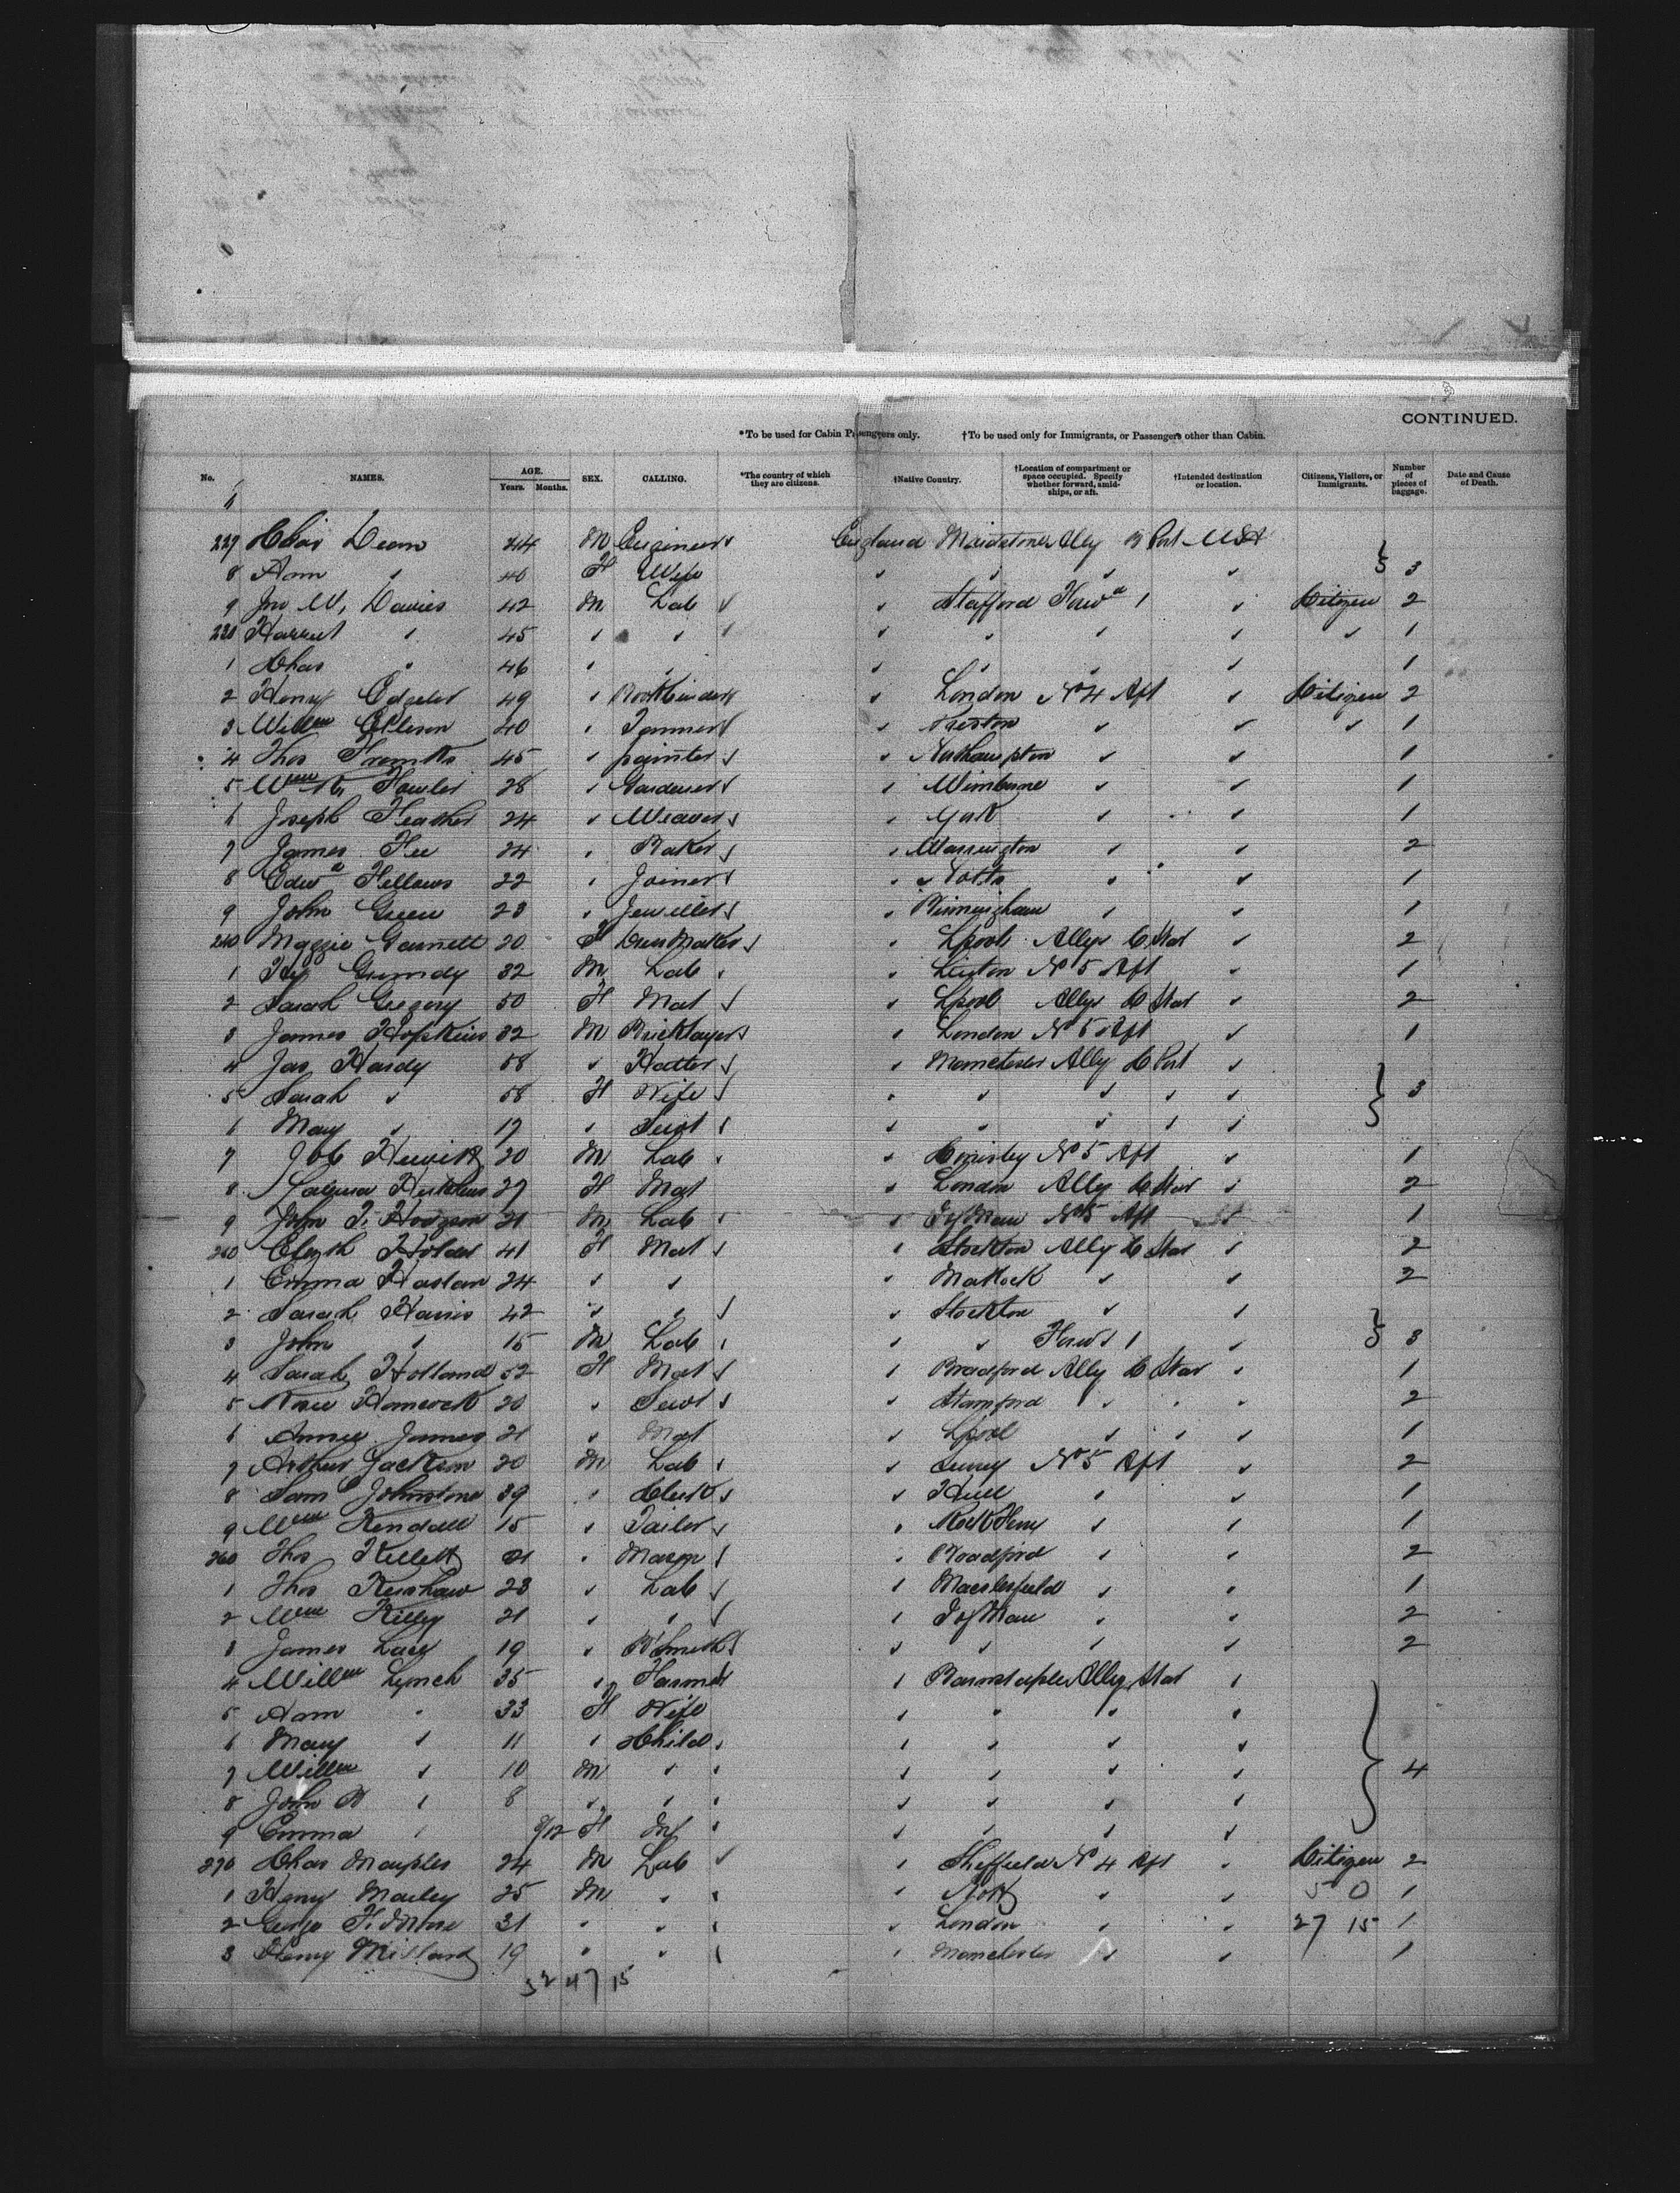 CONTINUED.
*To be used for Cabin Passengers only. †To be used only for Immigrants, or Passengers other than Cabin.
No. NAMES. AGE. Years. Months. SEX. CALLING. *The country of which they are citizens. †Native Country. †Location of compartment or space occupied. Specify whether forward, amidships, or aft. †Intended destination or location. Citizens, Visitors, or Immigrants. Number of pieces of baggage. Date and Cause of Death.
227 Chas Dean 44 M Engineer England Maidstone Ally B Port USA
8 Ann " 46 F Wife " " " " } 3
9 Jno W. Davies 42 M Lab " Stafford Forwd 1 " Citizen 2
230 Harriet " 45 " " " " " " " 1
1 Chas " 46 " " " " " " 1
2 Henry Edgeler 49 " Bookbinder " London No 4 Aft " Citizen 2
3 Willm Ellison 40 " Tanner " Preston " " " 1
4 Thos 45 " painter " Northampton " " 1
5 Wm Fowler 28 " Gardener " Wimburne " " 1
6 Joseph Feather 24 " Weaver " York " " 1
7 James Fee 24 " Baker " Warrington " " 2
8 Edwd Fellows 22 " Joiner " Notts " " 1
9 John Green 23 " Jeweller " Birmingham " " 1
240 Maggie Garnett 20 F DressMaker " Lpool Ally C Star " 2
1 Hy Grundy 32 M Lab " No 5 Aft " 1
2 Sarah Gregory 50 F Mat " Lpool Ally C Star " 2
3 James Hopkins 32 M Bricklayer " London No 5 Aft " 1
4 Jas Hardy 58 " Hatter " Manchester Ally C Port "
5 Sarah " 58 F Wife " " " " " } 3
6 Mary " 17 " Servt " " " " "
7 Hewitt 20 M Lab " No 5 Aft " 1
8 27 F Mat " London Ally C Star " 2
9 John T. Hodgson 21 M Lab " I of Man No 5 Aft " 1
250 Elizth Holder 41 F Mat " Stockton Ally C Star " 2
1 Emma Haslam 24 " " " Matlock " " 2
2 Sarah Harris 42 " " " Stockton " "
3 John " 15 M Lab " " Forwd 1 " } 3
4 Sarah Holland 52 F Mat " Bradford Ally C Star " 1
5 20 " Servt " Stamford " " " 2
6 Annie James 21 " Mat " Lpool " " " 1
7 Arthur Jackson 20 M Lab " Surrey No 5 Aft " 2
8 Saml Johnstone 39 " Clerk " Hull " " 1
9 Wm Kendall 15 " Tailor " " " 1
260 Thos Kellett 21 " Mason " Bradford " " 2
1 Thos Kershaw 23 " Lab " Macclesfield " " 1
2 Wm Killey 21 " " " I of Man " " 2
3 James Lace 19 " B'Smith " " " " 2
4 Willm Lynch 35 " Farmer " Barnstaple Ally Star "
5 Ann " 33 F Wife " " " "
6 Mary " 11 " Child " " " "
7 Willm " 10 M " " " " " } 4
8 John " 8 " " " " " "
9 Emma " 9/12 F Inf " " " "
270 Chas Maples 24 M Lab " Sheffield No 4 Aft " Citizen 2
1 Henry Marley 25 M " " " " 5 0 1
2 George 31 " " " London " " 27 15 1
3 Henry Millard 19 " " " Manchester " " 1
32 47 15